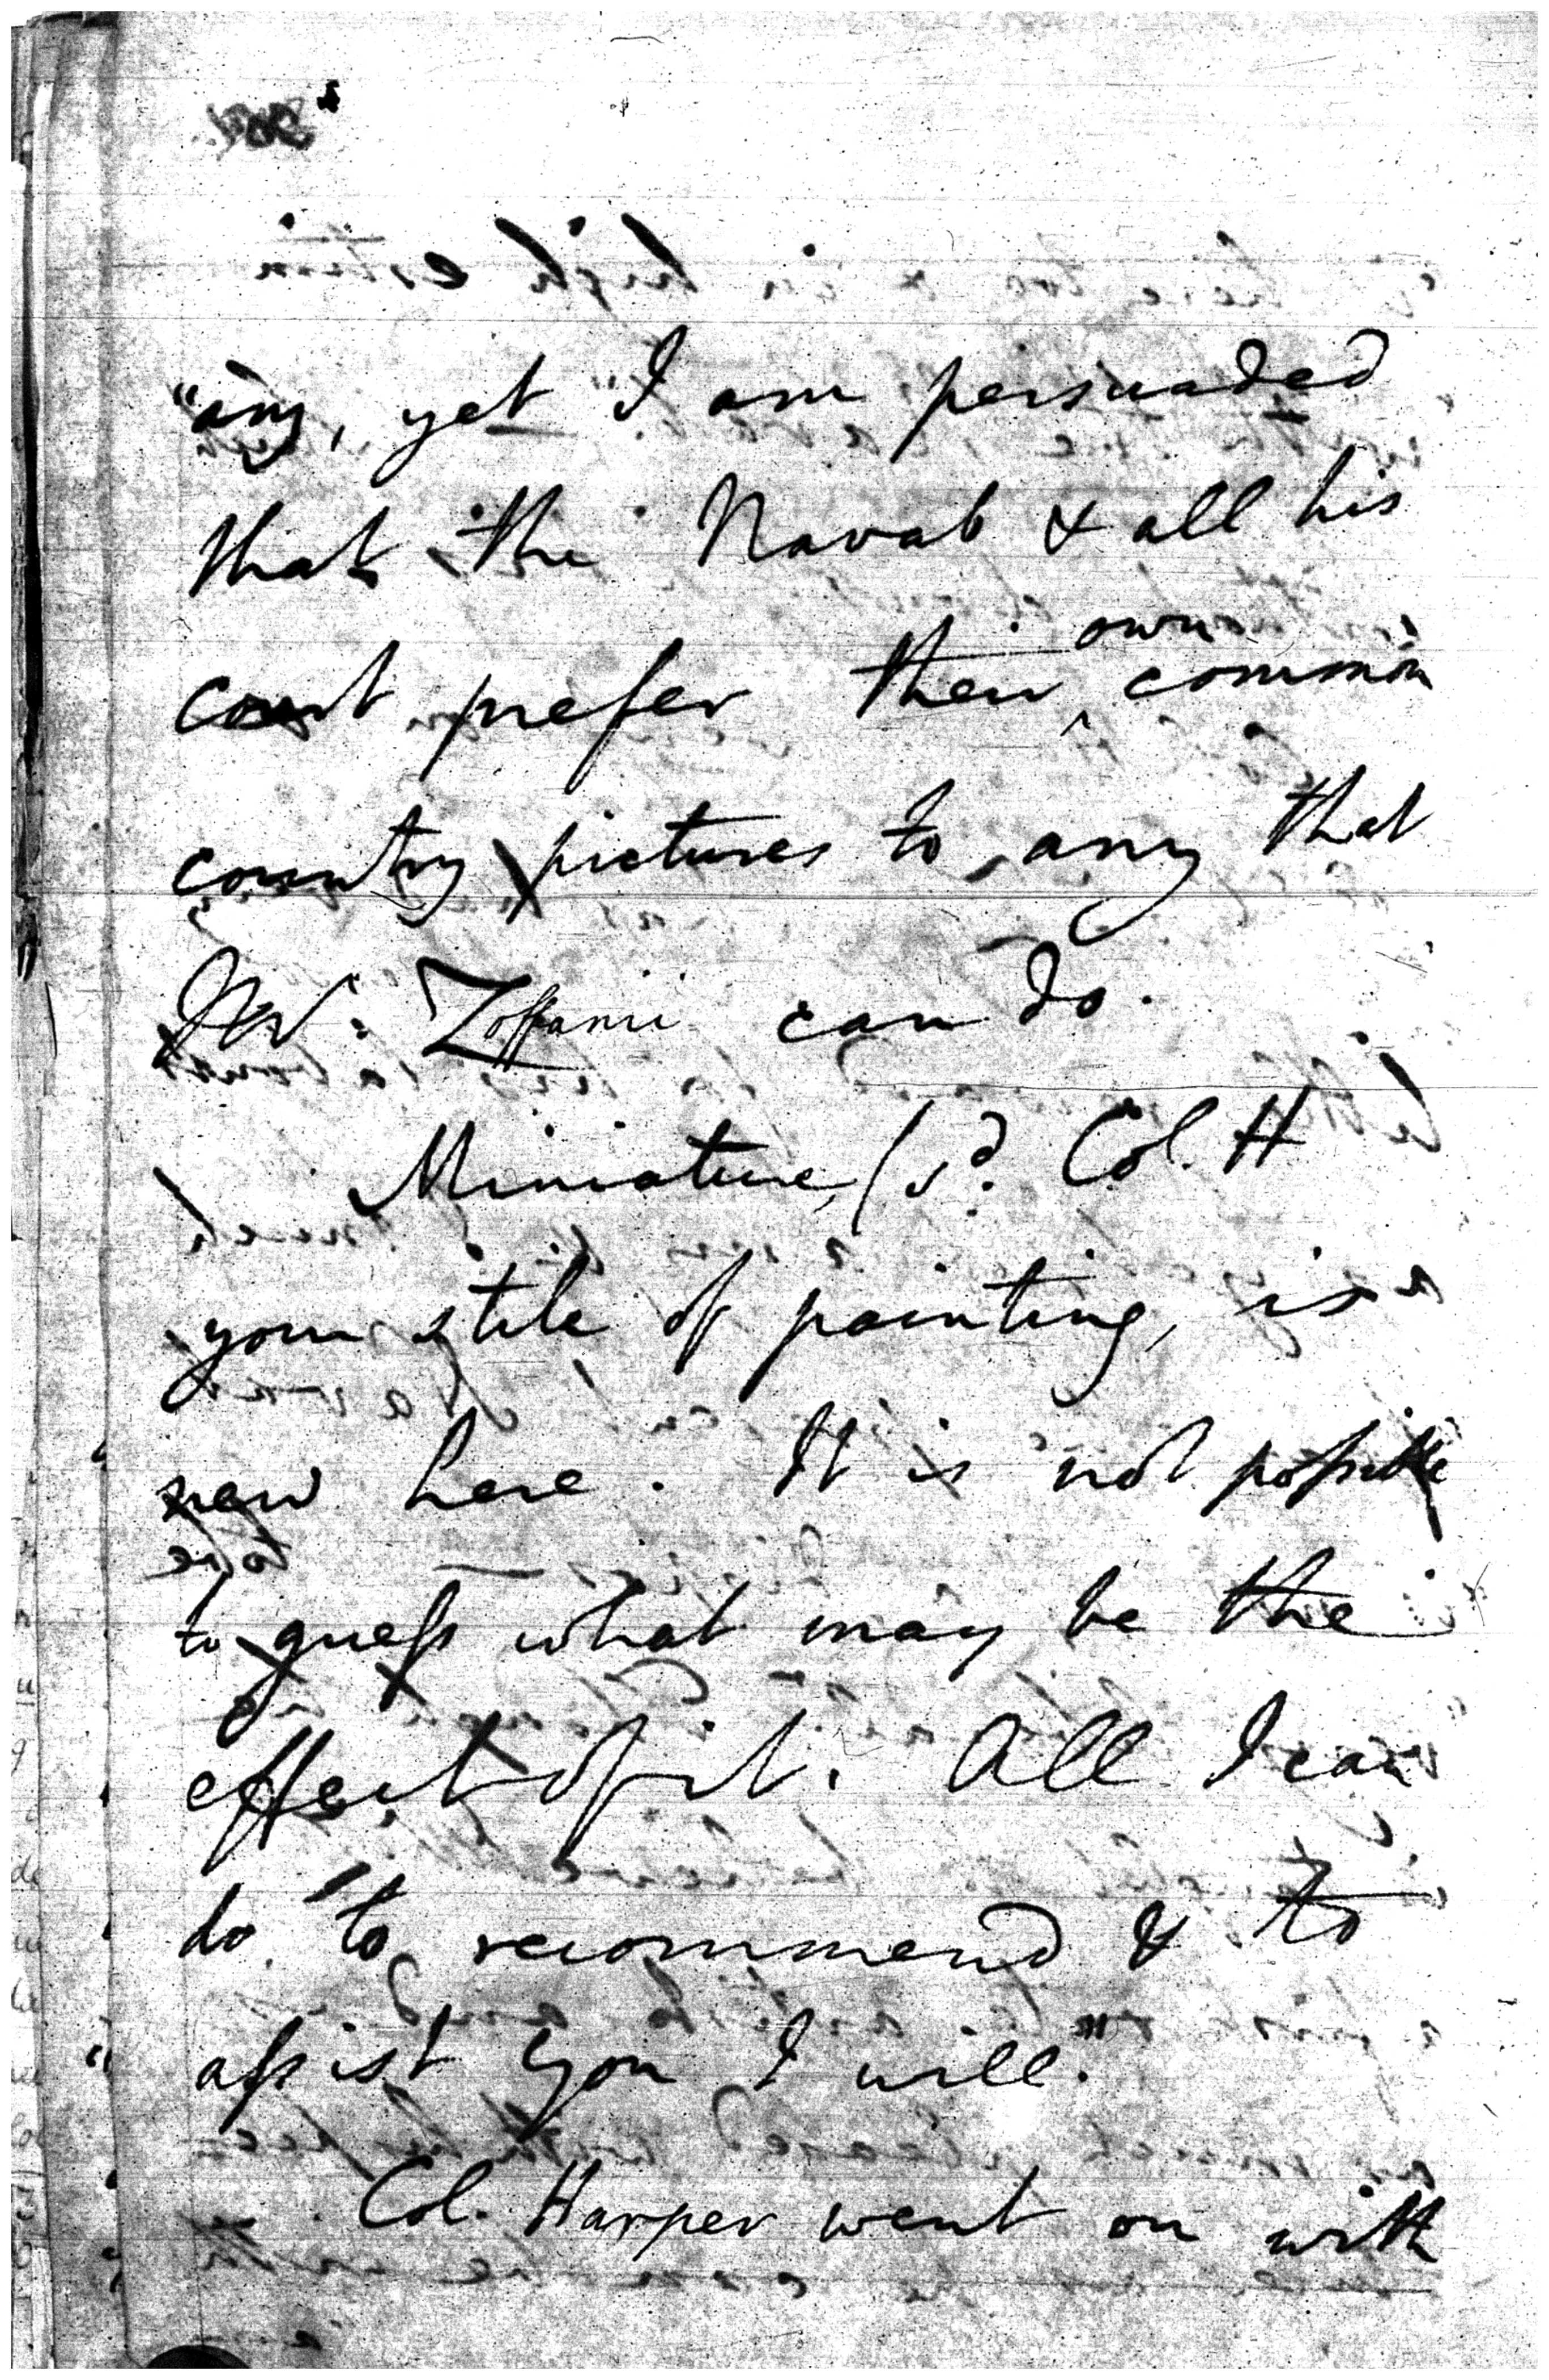 "any, yet I am persuaded
that the Navab & all his
court prefer their own common
country pictures to any that
Mr. Zoffani can do.
Miniature, (sd. Col. H
your stile of painting, is
new here. It is not possible
to guess what may be the
effect of it. All I can
do to recommend & to
assist you I will."
Col. Harper went on with